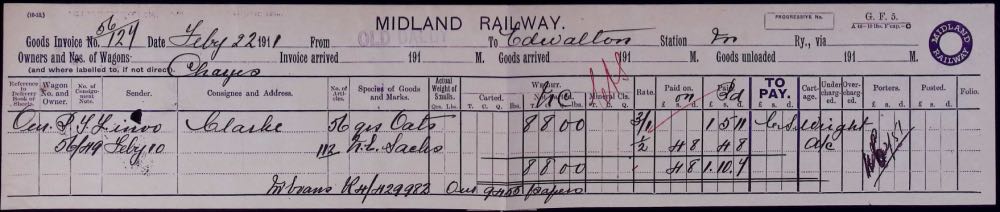 (10-12.) MIDLAND RAILWAY. PROGRESSIVE No. G. F. 5.
Goods Invoice No. 56/127 Date Feby 22 1911 From OLD DALBY To Edwalton Station Mr Ry., via
Owners and Nos. of Wagons: Invoice arrived 191 M. Goods arrived 191 M. Goods unloaded 191 M.
(and where labelled to, if not direct). Chayes
MIDLAND RAILWAY
Reference to Delivery Book or Sheets. Wagon No. and Owner. Consignment Note. Sender. Consignee and Address. No. of Articles. Species of Goods and Marks. Actual Weight of Smalls. Qrs. Lbs. Carted. T. C. Q. Lbs. Rate. Paid on. £ s. d. Pd £ s. d. TO PAY. £ s. d. Cartage. Undercharged. Overcharged. Porters. £ s. d. Posted. £ s. d. Folio.
Clarke 56 qrs Oats 8 8 0 0 3/1 1 5 11 C. S. Wright
56/49 Feby 10 112 Sacks 1/2 4 8 4 8 a/c
8 8 0 0 4 8 1 . 10 . 7
R4/429982 Our papers